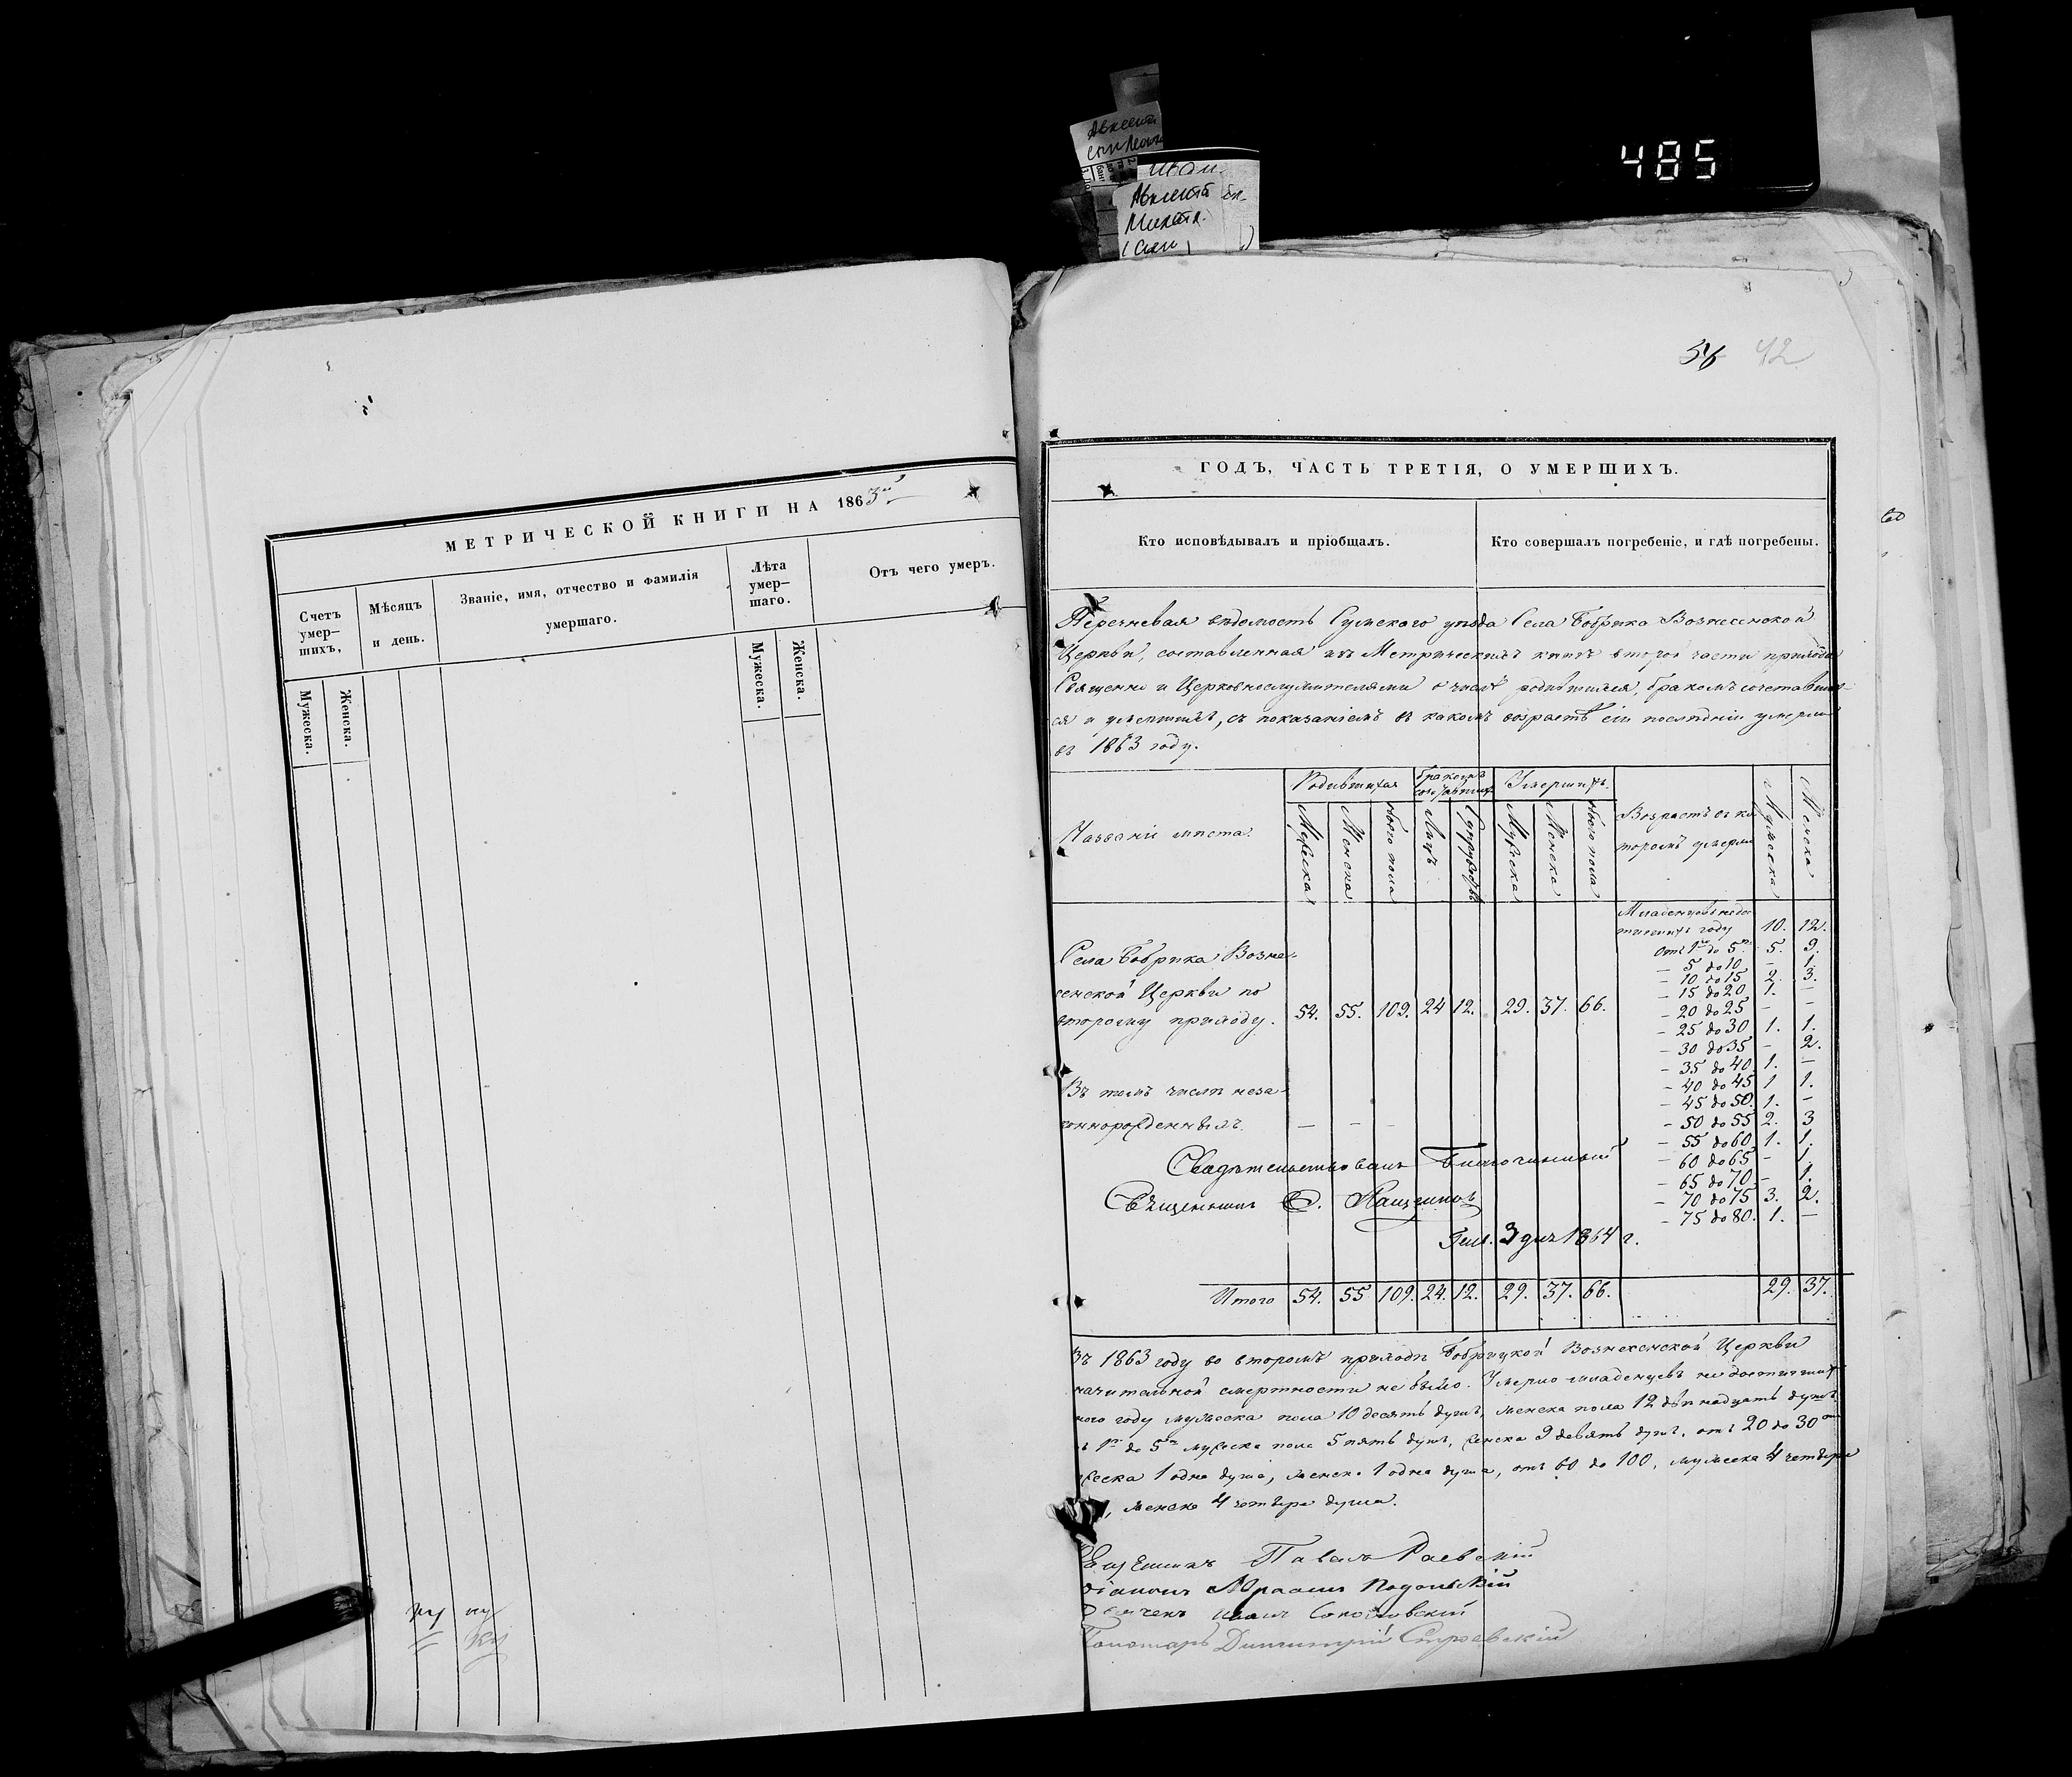 Авксент
Авксент
485
56 42
МЕТРИЧЕСКОЙ КНИГИ НА 1863й
Счетъ умер-шихъ,
Мѣсяцъ и день.
Званіе, имя, отчество и фамилія умершаго.
Лѣта умер-шаго.
Отъ чего умеръ.
Мужеска.
Женска.
Мужеска.
Женска.
ГОДЪ, ЧАСТЬ ТРЕТІЯ, О УМЕРШИХЪ.
Кто исповѣдывалъ и пріобщалъ.
Кто совершалъ погребеніе, и гдѣ погребены.
Перечневая вѣдомость Сумского уѣзда Села Бобрика Вознесенской
Церкви, составленная изъ Метрическихъ книгъ второй части прихода
Священно и Церковнослужителями о числѣ родившихся, бракомъ сочетавших-
ся и умершихъ, съ показаніемъ въ какомъ возрастѣ сіи послѣдніи умерли
въ 1863 году.
Названіе мѣста.
Родившихся
Бракомъ сочетавшихся
Умершихъ.
Возрастъ въ ко-
торомъ умерли
Мужеска
Женска
Мужеска
Женска
обоего пола
Лицъ
Супружествъ
Мужеска
Женска
обоего пола
Младенцовъ не дос-
тигшихъ году 10. 12.
Отъ 1го до 5ти 5. 9.
– 5 до 10 – 1.
– 10 до 15 2. 3.
– 15 до 20 1. –
– 20 до 25 –
– 25 до 30 1. 1.
– 30 до 35 – 2.
– 35 до 40 1. –
– 40 до 45 1 1.
– 45 до 50 1. –
– 50 до 55 2. 3
– 55 до 60 1. 1.
– 60 до 65 – 1.
– 65 до 70 – 1.
– 70 до 75 3. 2.
– 75 до 80. 1. –
Села Бобрика Возне-
сенской Церкви по
второму приходу. 54. 55. 109. 24 12. 29. 37. 66.
Въ томъ числѣ неза-
коннорожденныхъ. – – –
Свидѣтельствовалъ Благочинный
Священникъ
Генв. 3 дня 1864 г.
Итого 54. 55 109. 24. 12. 29. 37. 66. 29. 37.
Въ 1863 году во второмъ приходѣ Бобрицкой Вознесенской Церкви
значительной смертности не было. Умерло младенцевъ не достигших
году мужеска пола 10 десять душъ, женска пола 12 двѣнадцать душъ
1го до 5ти мужеска пола 5 пять душъ, женска 9 девять душъ, отъ 20 до 30ти
жеска 1 одна душа, женска 1 одна душа, отъ 60 до 100, мужеска 4 четыре
, женска 4 четыре душа.
Священникъ Павелъ Раевскій
Діаконъ Подольскій
Дьячекъ Иоанъ Соколовскій
Пономарь Димитрій